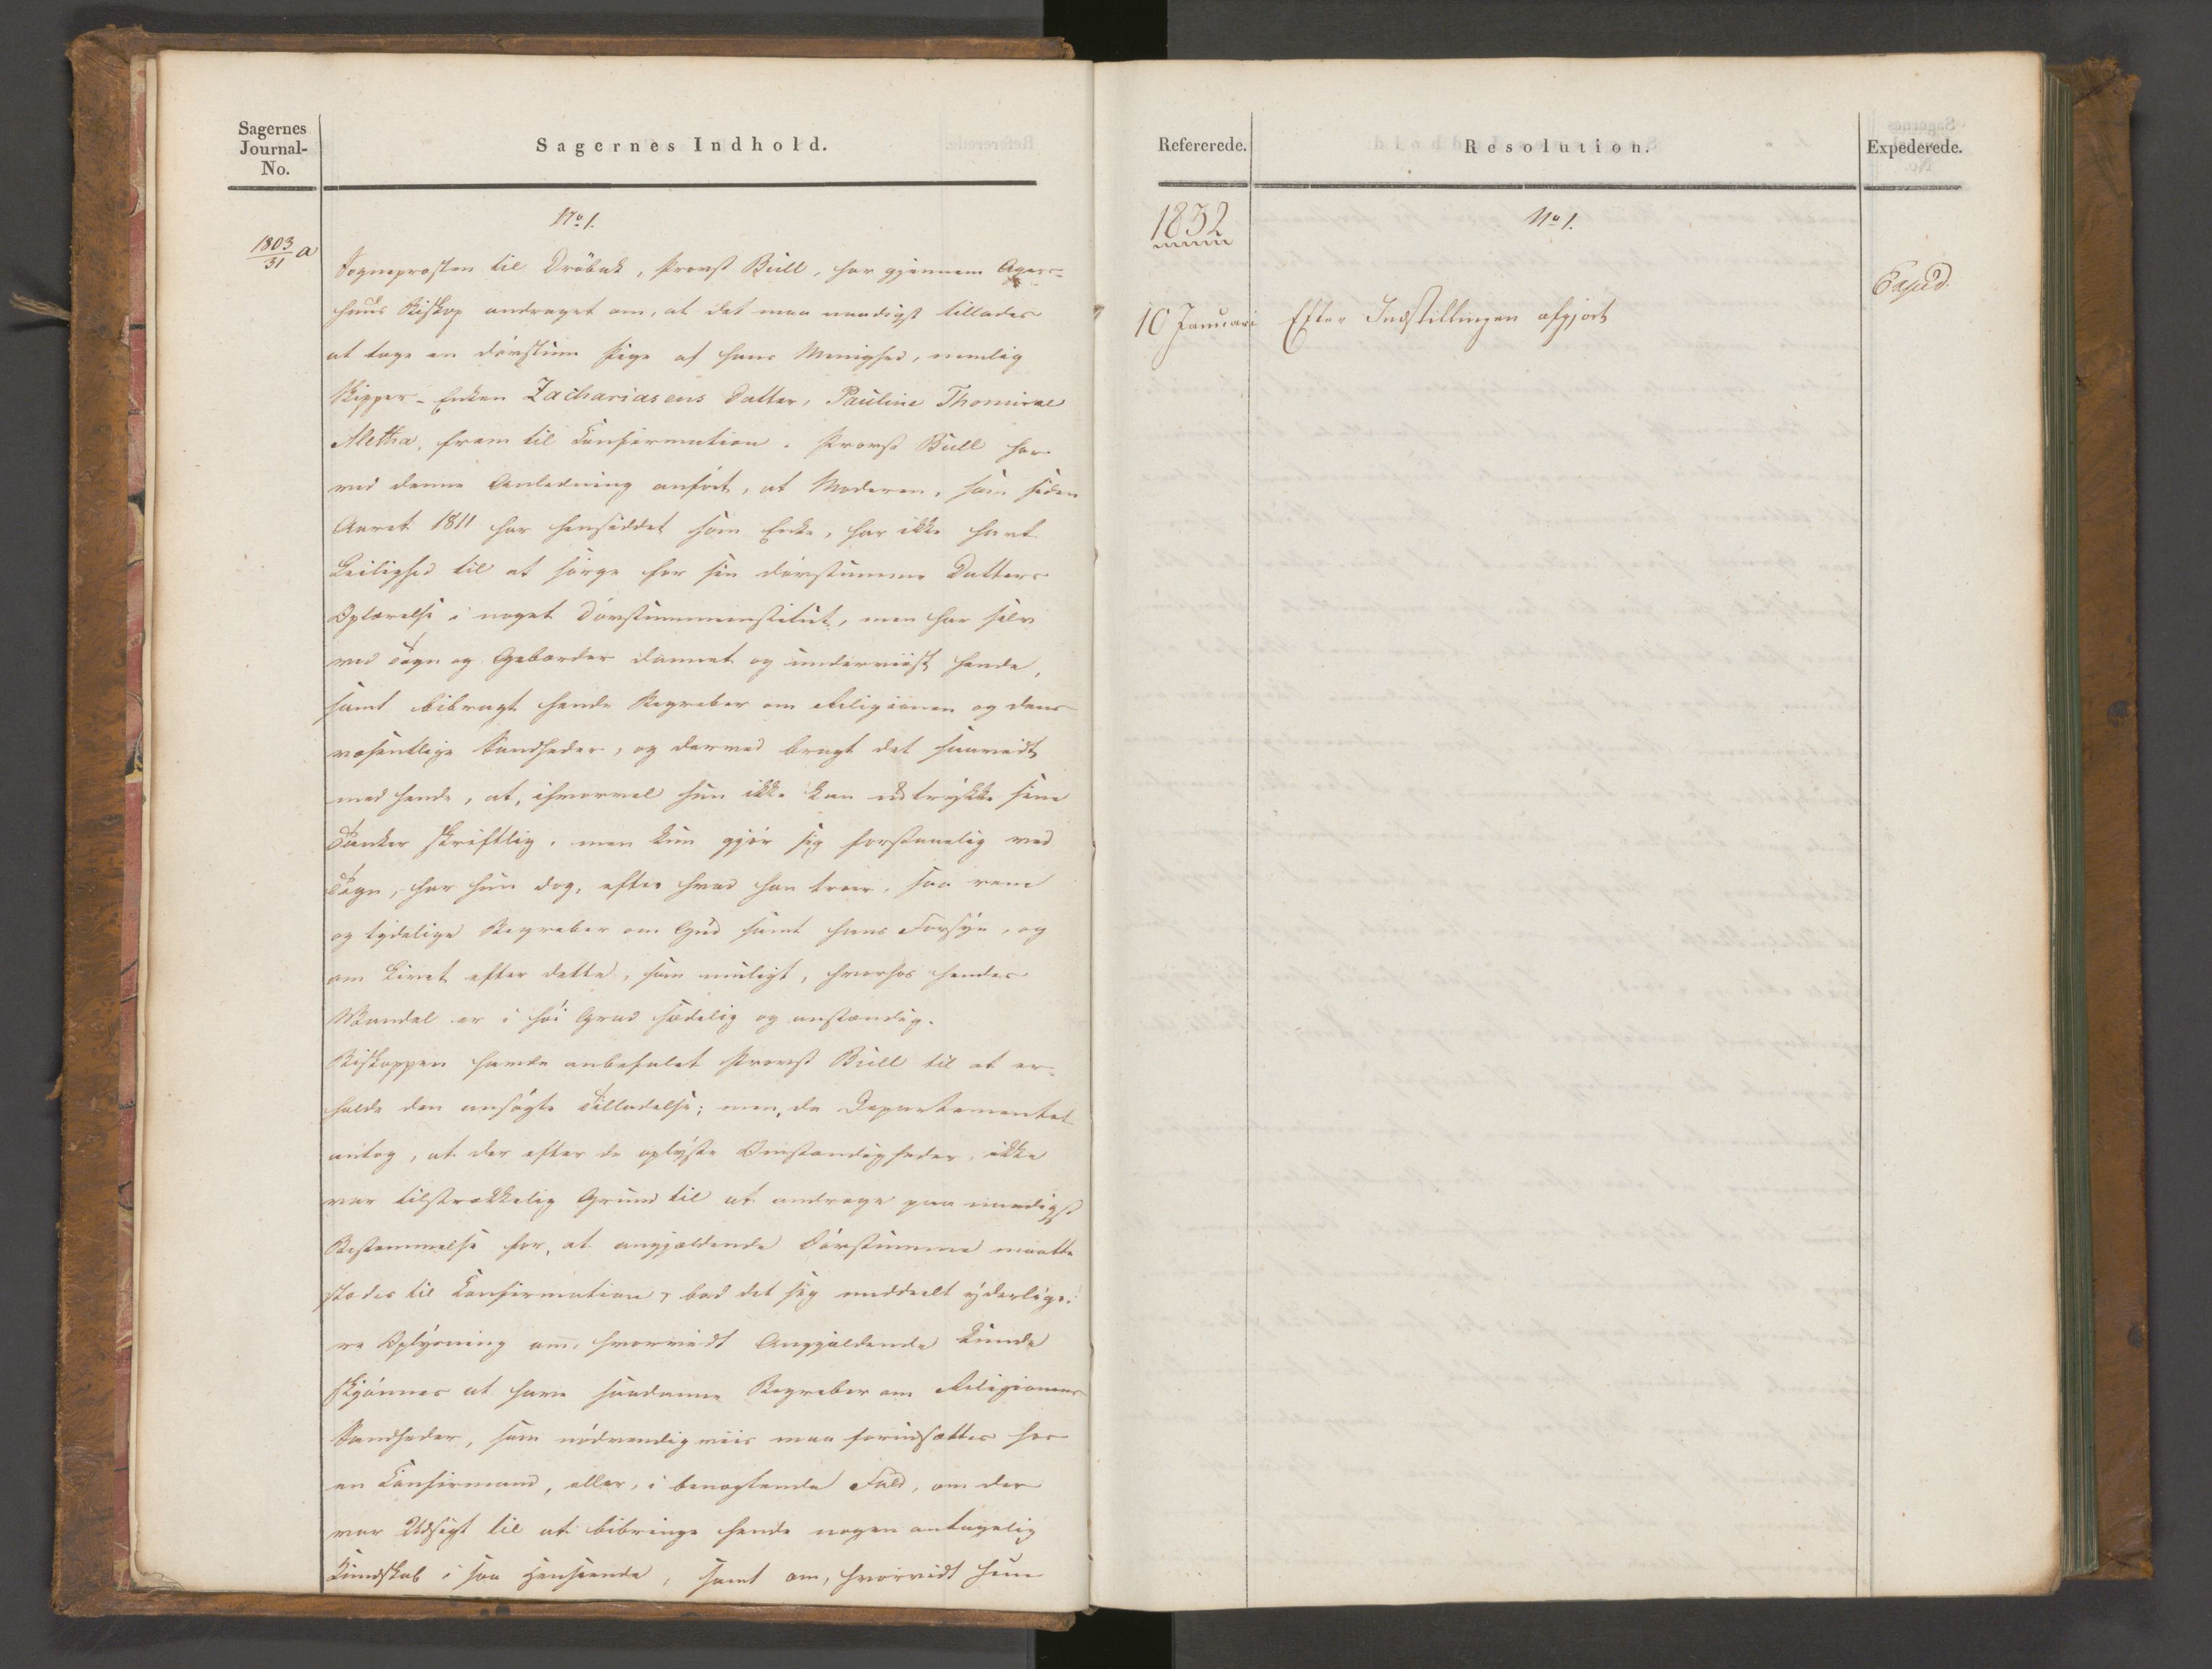 Sagernes
Journal-
No.
Sagernes Indhold.
No. 1.
1803/31 a
Sognepresten til Dröbak, Provst Bull, har gjennem Agers-
huus Biskop andraget om, at det maa naadigst tillades
at tage en døvstum Pige af hans Menighed, nemlig
Skipper-Enken Zachariasens Datter, Pauline Thomine
Aletha, frem til Confirmation. Provst Bull har
ved denne Anledning anført, at Moderen, som siden
Aaret 1811 har hensiddet som Enke, har ikke havt
Leilighed til at sørge for sin døvstumme Datters
Oplærelse i noget Døvstummeinstitut, men har selv
ved Tegn og Gebærder dannet og underviist hende,
samt bibragt hende Begreber om Religionen og dens
væsentlige Sandheder, og derved bragt det saavidt
med hende, at, ihvorvel hun ikke kan udtrykke sine
Tanker skriftlig, men kun gjør sig forstaaelig ved
Tegn, har hun dog, efter hvad han troer, saa rene
og tydelige Begreber om Gud samt hans Forsyn, og
om Livet efter dette, som muligt, hvorhos hendes
Vandel er i høi Grad sædelig og anstændig.
Biskoppen havde anbefalet Provst Bull til at er-
holde den ansøgte Tilladelse; men, da Departementet
antog, at der efter de oplyste Omstændigheder, ikke
var tilstrækkelig Grund til at andrage paa naadigst
Bestemmelse for, at angjældende Døvstumme maatte
stædes til Confirmation, bad det sig meddeelt yderlige-
re Oplysning om, hvorvidt Angjældende kunde
skjønnes at have saadanne Begreber om Religionens
Sandheder, som nødvendigviis maa forudsættes hos
en Confirmand, eller, i benægtende Fald, om der
var Udsigt til at bibringe hende nogen antagelig
Kundskab i saa Henseende, samt om, hvorvidt hun
Refererede.
Resolution.
Expederede.
1832
No. 1.
Exped.
10 Januari Efter Indstillingen afgjort